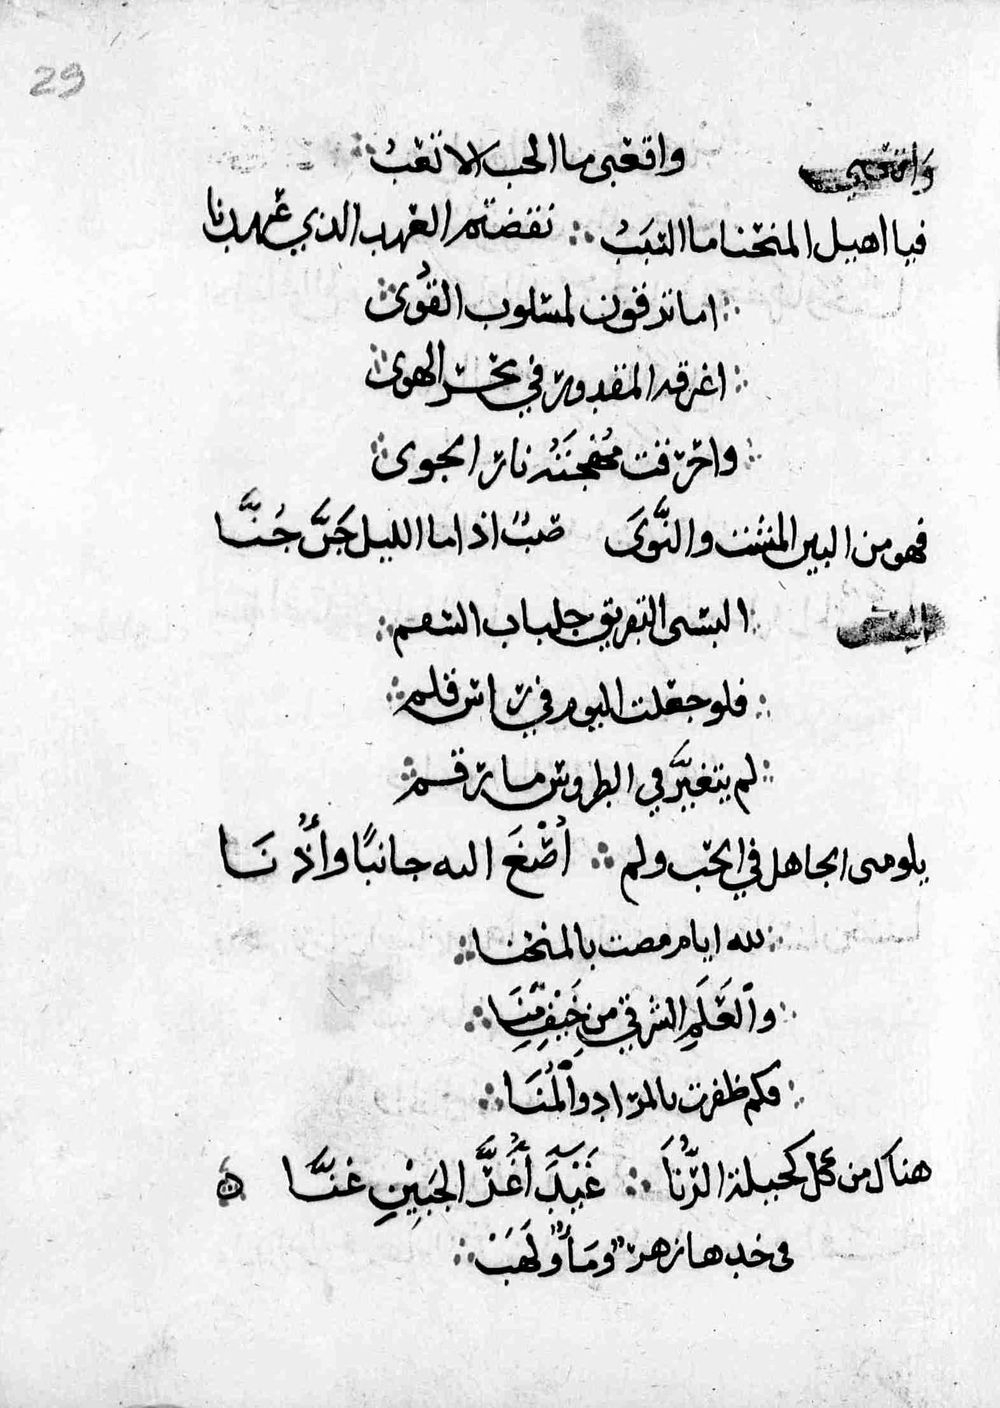 29
واتعبي ما الحب الا تعب
فيا اهيل المنحنا ما السبب ؞ نقضتم العهد الذي عهدنا
؞ اما ترقون لمسلوب القوى ؞
؞ اغرقه المقدور في بحر الهوى ؞
؞ واحرقت مهجته نار الجوى ؞
فهو من البين المشت والنَّوَى صبٌ اذا ما الليل جَنَّ جُنَّا
؞ البسني التفريق جلباب السقم ؞
؞ فلو جعلت اليوم في راس قلم ؞
؞ لم يتغيَّر في الطروس ما رقم ؞
يلومني الجاهل في الحب ولم ؞ اُصْغَ اليه جانبًا وأُذْنَا
؞ لله ايام مضت بالمنحنا ؞
؞ والعَلَمِ الشرقي من خَيْفِ مِنَا ؞
؞ فكم ظفرت بالمراد والمُنَا ؞
هناك من كل كحيلة الرُّنَا ؞ غَيْدَ أَغَرَّ الجَبِيْنِ غنَّا
في خدها زهرٌ ومأٌ ولَهَبْ ؞